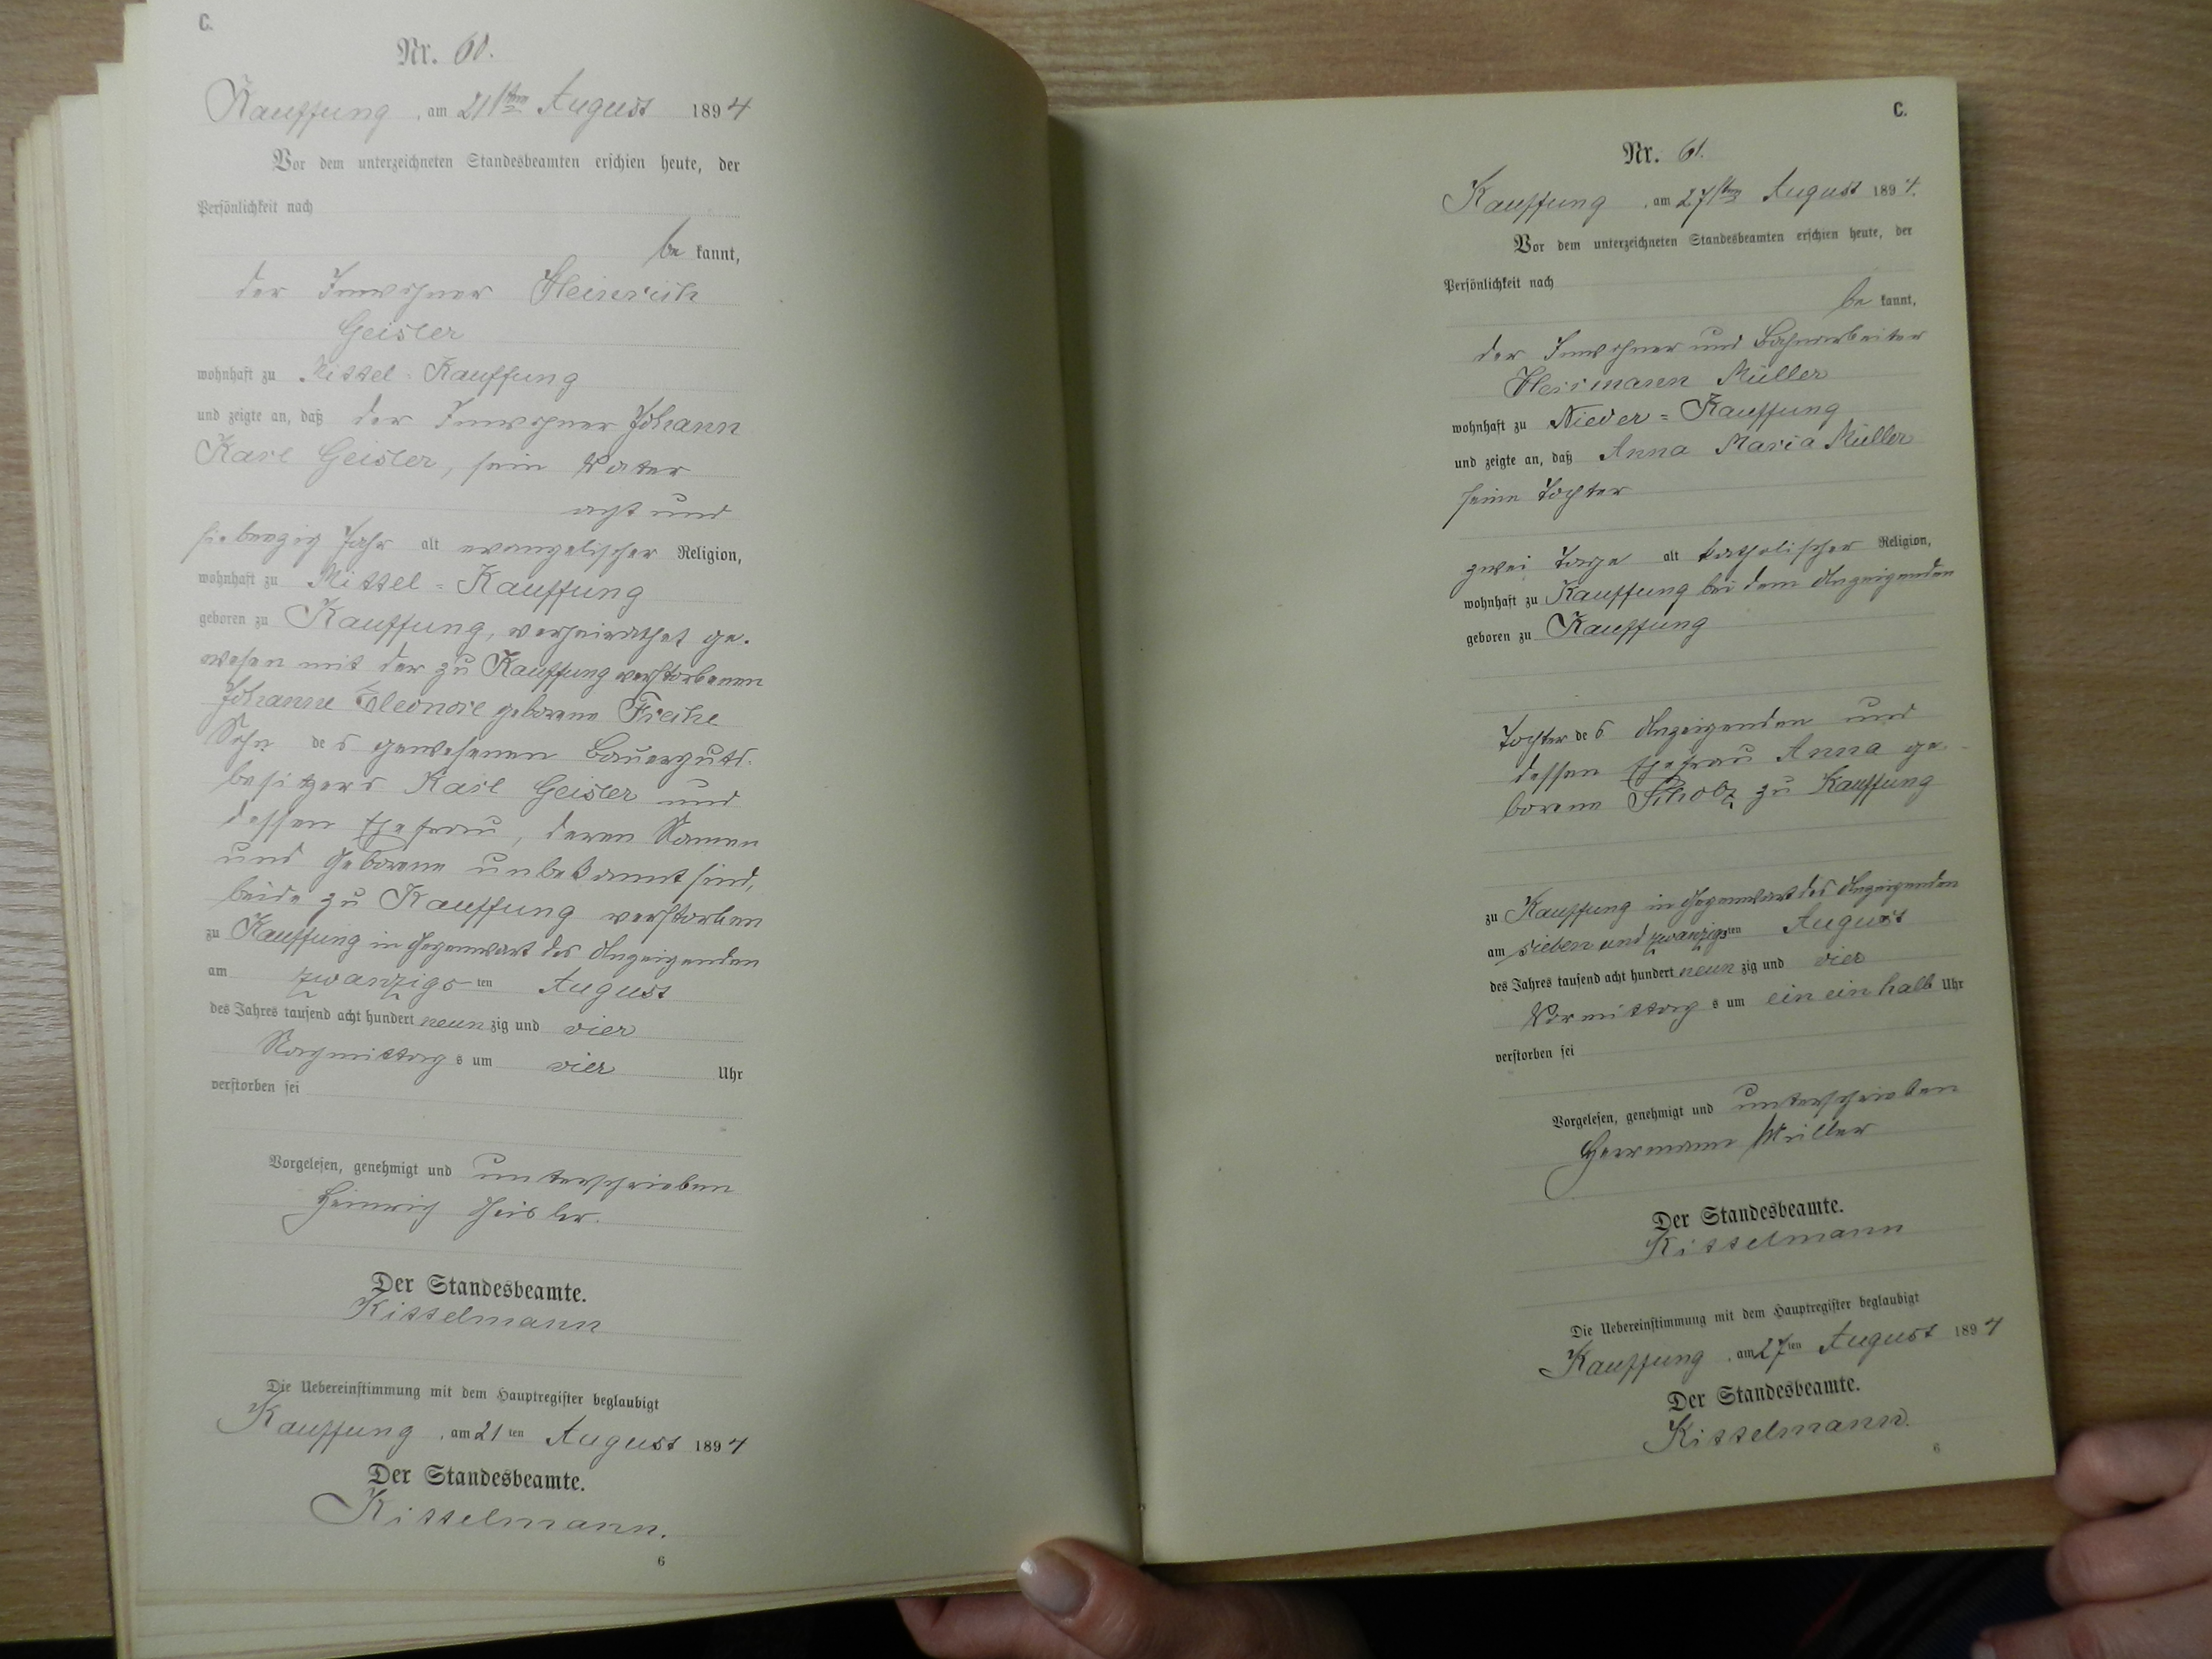 C.
Nr. 60.
Kauffung, am 21sten August 1894
Vor dem unterzeichneten Standesbeamten erschien heute, der
Persönlichkeit nach
be kannt,
der Inwohner Heinrich
Geisler
wohnhaft zu Mittel-Kauffung
und zeigte an, daß der Inwohner Johann
Karl Geisler, sein Vater
acht und
siebenzig Jahr alt evangelischer Religion,
wohnhaft zu Mittel=Kauffung
geboren zu Kauffung, verheirathet ge-
wesen mit der zu Kauffung verstorbenen
Johanne Eleonore geborene
Sohn des gewesenen Bauerguts-
besitzers Karl Geisler und
dessen Ehefrau, deren Namen
und Geborene unbekannt sind,
beide zu Kauffung verstorben
zu Kauffung in Gegenwart des Anzeigenden
am zwanzigsten August
des Jahres tausend acht hundert neunzig und vier
Nachmittags um vier Uhr
verstorben sei
Vorgelesen, genehmigt und unterschrieben
Heinrich Geisler.
Der Standesbeamte.
Kittelmann
Die Uebereinstimmung mit dem Hauptregister beglaubigt
Kauffung, am 21ten August 1894
Der Standesbeamte.
Kittelmann.
6
C.
Nr. 61.
Kauffung, am 27sten August 1894.
Vor dem unterzeichneten Standesbeamten erschien heute, der
Persönlichkeit nach
be kannt,
der Inwohner und Bahnarbeiter
Herrmann Müller
wohnhaft zu Nieder=Kauffung
und zeigte an, daß Anna Maria Müller
seine Tochter
zwei Tage alt katholischer Religion,
wohnhaft zu Kauffung bei dem Anzeigenden
geboren zu Kauffung
Tochter des Anzeigenden und
dessen Ehefrau Anna ge-
borene Scholz zu Kauffung
zu Kauffung in Gegenwart des Anzeigenden
am sieben und zwanzigsten August
des Jahres tausend acht hundert neunzig und vier
Vormittags um ein ein halb Uhr
verstorben sei
Vorgelesen, genehmigt und unterschrieben
Herrmann Müller
Der Standesbeamte.
Kittelmann
Die Uebereinstimmung mit dem Hauptregister beglaubigt
Kauffung, am 27ten August 1894
Der Standesbeamte.
Kittelmann.
6